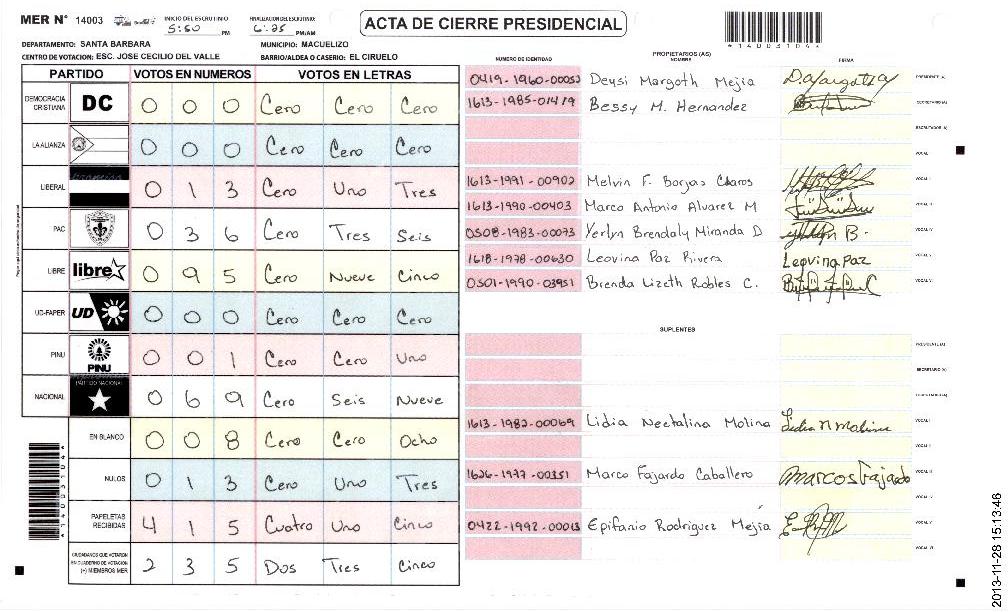 MER N° 14003 INICIO DEL ESCRUTINIO 5:50 PM FINALIZACION DEL ESCRUTINIO: 6:25 PM/AM
ACTA DE CIERRE PRESIDENCIAL
DEPARTAMENTO: SANTA BARBARA MUNICIPIO: MACUELIZO
CENTRO DE VOTACION: ESC. JOSE CECILIO DEL VALLE BARRIO/ALDEA O CASERIO: EL CIRUELO
PARTIDO VOTOS EN NUMEROS VOTOS EN LETRAS
DEMOCRACIA CRISTIANA DC 0 0 0 Cero Cero Cero
LA ALIANZA 0 0 0 Cero Cero Cero
LIBERAL 0 1 3 Cero Uno Tres
PAC 0 3 6 Cero Tres Seis
LIBRE libre 0 9 5 Cero Nueve Cinco
UD-FAPER UD 0 0 0 Cero Cero Cero
PINU PINU 0 0 1 Cero Cero Uno
NACIONAL PARTIDO NACIONAL 0 6 9 Cero Seis Nueve
EN BLANCO 0 0 8 Cero Cero Ocho
NULOS 0 1 3 Cero Uno Tres
PAPELETAS RECIBIDAS 4 1 5 Cuatro Uno Cinco
CIUDADANOS QUE VOTARON EN CUADERNO DE VOTACION (+) MIEMBROS MER 2 3 5 Dos Tres Cinco
PROPIETARIOS (AS)
NUMERO DE IDENTIDAD NOMBRE FIRMA
0419-1960-00053 Deysi Margoth Mejia PRESIDENTE (A)
1613-1985-01419 Bessy M. Hernandez SECRETARIO (A)
ESCRUTADOR (A)
VOCAL I
1613-1991-00902 Melvin F. Borjas Claros
1613-1990-00403 Marco Antonio Alvarez M
0508-1983-00093 Yerlyn Brendaly Miranda D
1618-1978-00630 Leovina Paz Rivera Leovina Paz
0501-1990-03951 Brenda Lizeth Robles C.
SUPLENTES
PRESIDENTE (A)
SECRETARIO (A)
ESCRUTADOR (A)
1613-1982-00069 Lidia Nectalina Molina Lidia N Molina
1626-1977-00351 Marco Fajardo Caballero Marcos Fajardo
0422-1992-00013 Epifanio Rodriguez Mejía
2013-11-28 15:13:46